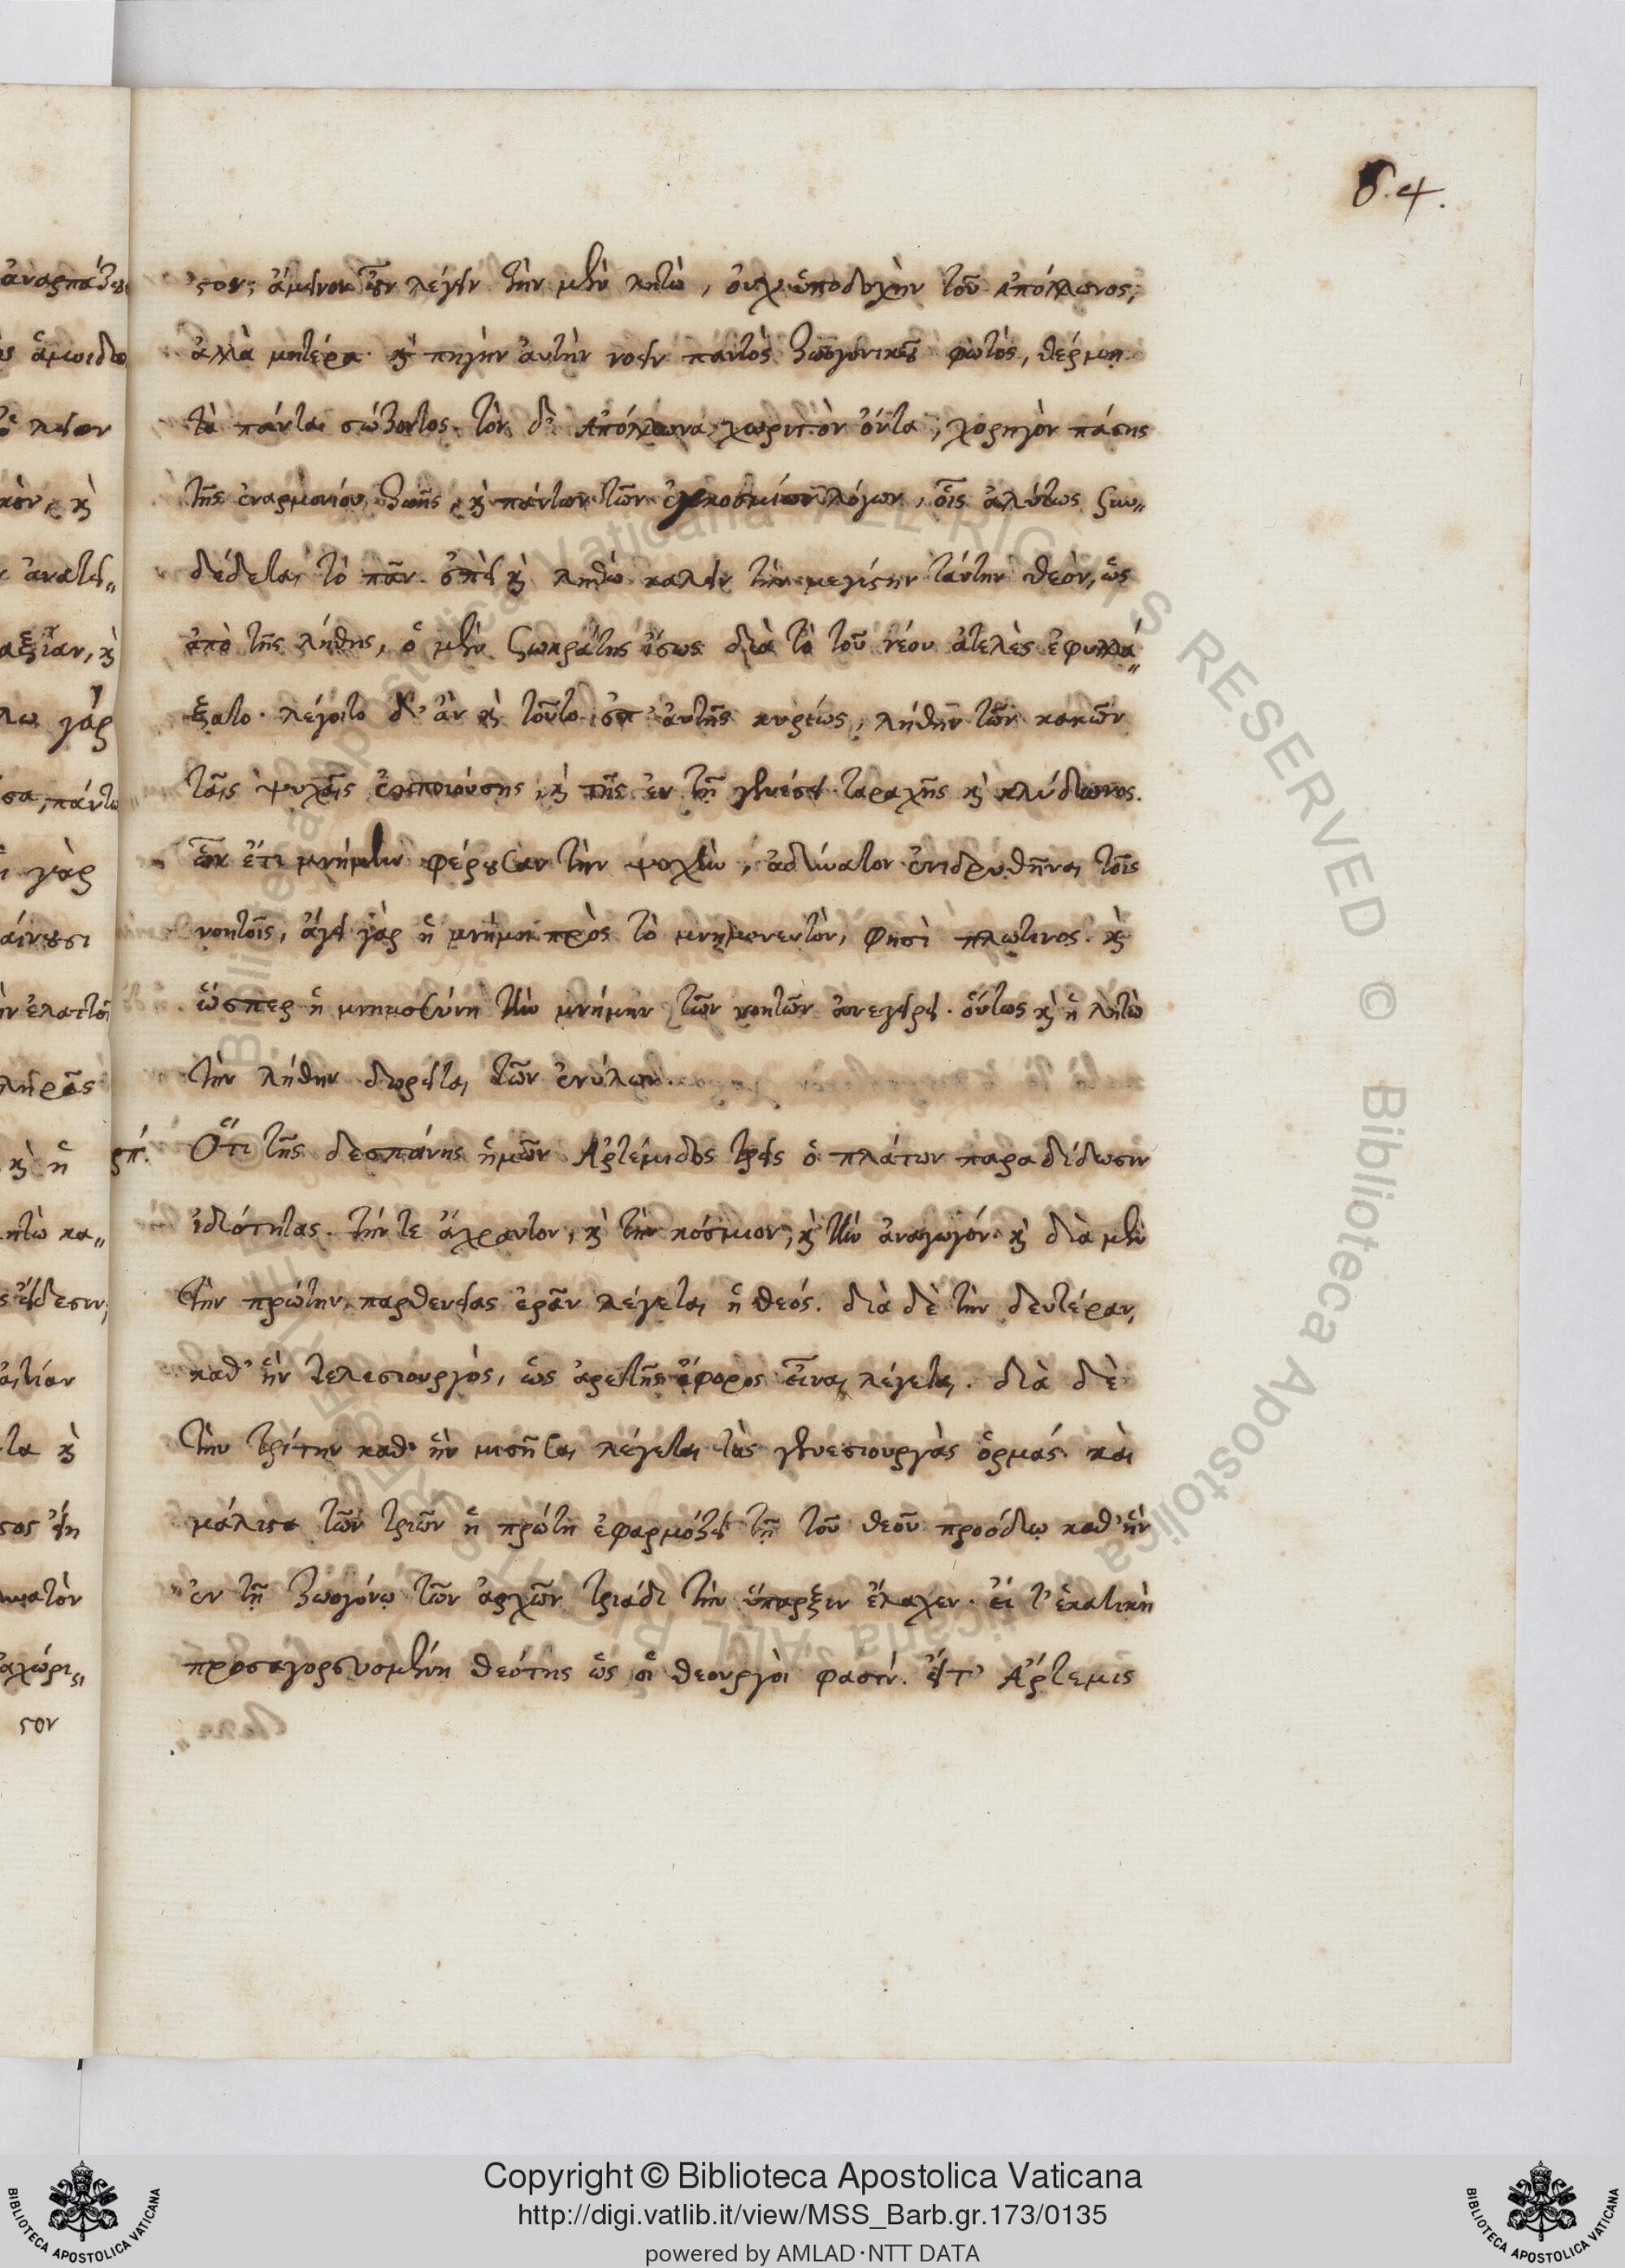 84.
στον; ἄμεινον οὖν λέγειν τὴν μὲν λητὼ, οὐχ ὑποδοχὴν τοῦ ἀπόλλωνος,
ἀλλὰ μητέρα καὶ πηγὴν αὐτὴν νοεῖν παντὸς ζωογονικοῦ φωτὸς, θέρμῃ
τὰ πάντα σώζοντος. τὸν δ' Ἀπόλλωνα χωριστὸν ὄντα, χορηγὸν πάσης
τῆς ἐναρμονίου ζωῆς, καὶ πάντων τῶν ἐγκοσμίων λόγων, οἷς ἀλύτως συν„
δέδεται τὸ πᾶν. ἐπεὶ καὶ ληθὼ καλεῖν τὴν μεγίστην ταύτην θεὸν, ὡς
ἀπὸ τῆς λήθης, ὁ μὲν Σωκράτης ἴσως διὰ τὸ τοῦ νέου ἀτελὲς ἐφυλλά„
ξατο. λέγοιτο δ' ἂν καὶ τοῦτο ἐπ' αὐτῆς κυρίως, λήθην τῶν κακῶν
ταῖς ψυχαῖς ἐμποιούσης, καὶ τῆς ἐν τῇ γενέσει ταραχῆς καὶ κλύδωνος.
ὧν ἔτι μνήμην φέρουσαν τὴν ψυχὴν, ἀδύνατον ἐνιδρυθῆναι τοῖς
νοητοῖς, ἄγει γὰρ ἡ μνήμη πρὸς τὸ μνημονευτὸν, φησὶ πλωτινος. καὶ
ὥσπερ ἡ μνημοσύνη τὴν μνήμην τῶν νοητῶν ἀνεγείρει. οὕτως καὶ ἡ λητὼ
τὴν λήθην δωρεῖται τῶν ἐνύλων.
ϛπ΄. Ὅτι τῆς δεσποίνης ἡμῶν Ἀρτέμιδος τρεῖς ὁ πλάτων παραδίδωσιν
ἰδιότητας. τήν τε ἄχραντον, καὶ τὴν κόσμιον, καὶ τὴν ἀναγωγόν. καὶ διὰ μὲν
τὴν πρώτην, παρθενείας ἐρᾶν λέγεται ἡ θεός. διὰ δὲ τὴν δευτέραν,
καθ' ἣν τελεσιουργὸς, ὡς ἀρετῆς ἔφορος εἶναι λέγεται. διὰ δὲ
τὴν τρίτην καθ' ἣν μισῆσαι λέγεται τὰς γενεσιουργὰς ὁρμάς. καὶ
μάλιστα τῶν τριῶν ἡ πρώτη ἐφαρμόζει τῇ τοῦ θεοῦ προόδῳ καθ' ἣν
ἐν τῇ ζωογόνῳ τῶν ἀρχῶν τριάδι τὴν ὕπαρξιν ἔλαχεν. εἰ τ' ἑκατικὴ
προσαγορευομένη θεότης ὡς οἱ θεουργοὶ φασίν. εἴτ' Ἄρτεμις
Copyright © Biblioteca Apostolica Vaticana
http://digi.vatlib.it/view/MSS_Barb.gr.173/0135
powered by AMLAD·NTT DATA